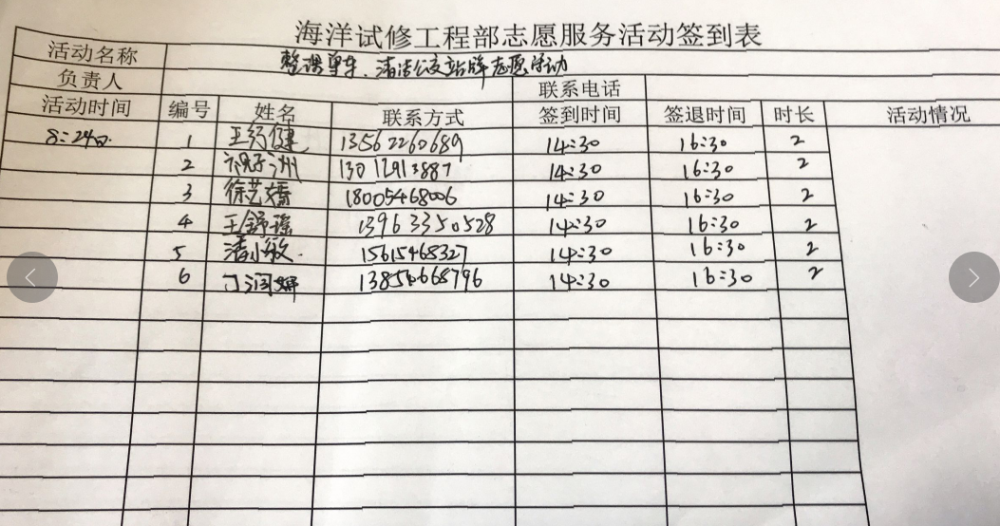 海洋试修工程部志愿服务活动签到表
活动名称 整理单车、清洁公交站牌志愿活动
负责人 联系电话
活动时间 编号 姓名 联系方式 签到时间 签退时间 时长 活动情况
8:24日 1 王纪健 13562260689 14:30 16:30 2
2 祝子洲 13012913887 14:30 16:30 2
3 徐艺嬌 18005468006 14:30 16:30 2
4 王舒瑶 13963350528 14:30 16:30 2
5 潘小敏 15615468327 14:30 16:30 2
6 门润娜 13854668796 14:30 16:30 2